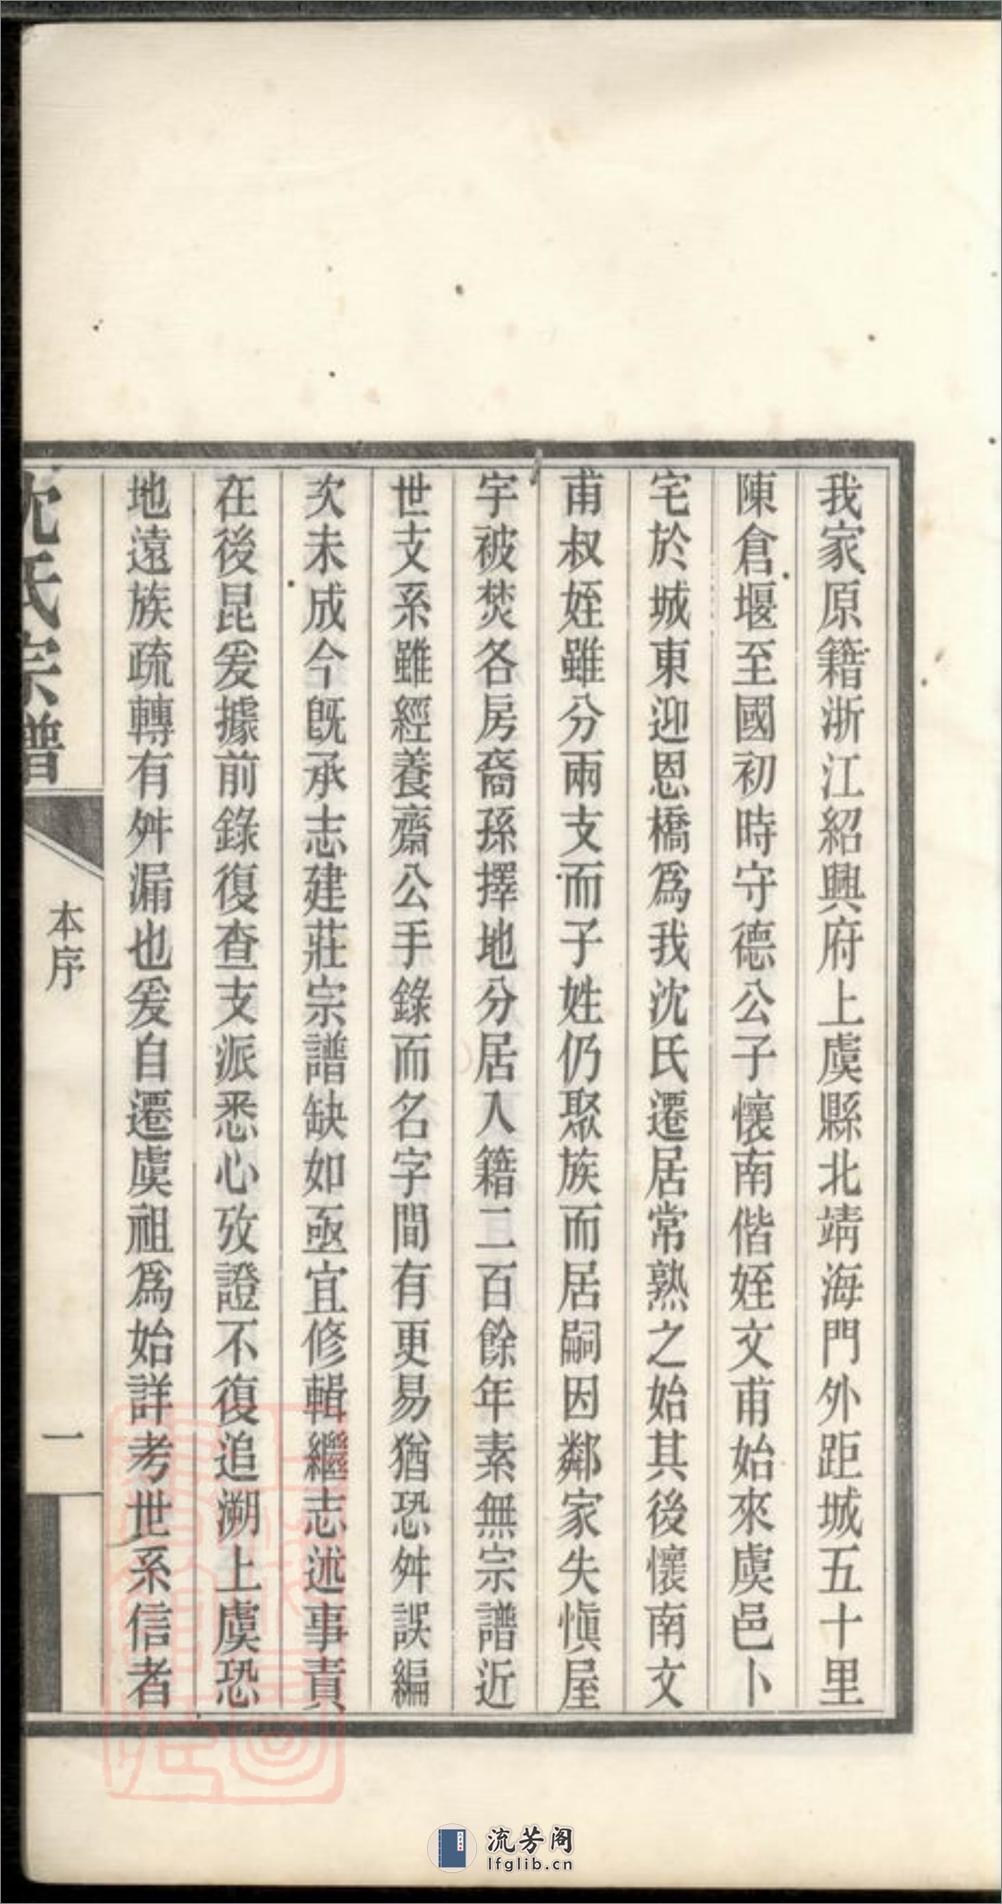 我家原籍浙江紹興府上虞縣北靖海門外距城五十里
陳倉堰至國初時守德公子懷南偕姪文甫始來虞邑卜
宅於城東迎恩橋為我沈氏遷居常熟之始其後懷南文
甫叔姪雖分兩支而子姓仍聚族而居嗣因鄰家失愼屋
宇被焚各房裔孫擇地分居入籍二百餘年素無宗譜近
世支系雖經養齋公手錄而名字間有更易猶恐舛誤編
次未成今旣承志建莊宗譜缺如亟宜修輯繼志述事責
在後昆爰據前錄復查支派悉心攷證不復追溯上虞恐
地遠族疏轉有舛漏也爰自遷虞祖為始詳考世系信者
沈氏宗譜
本序
一
流芳阁
lfglib.cn